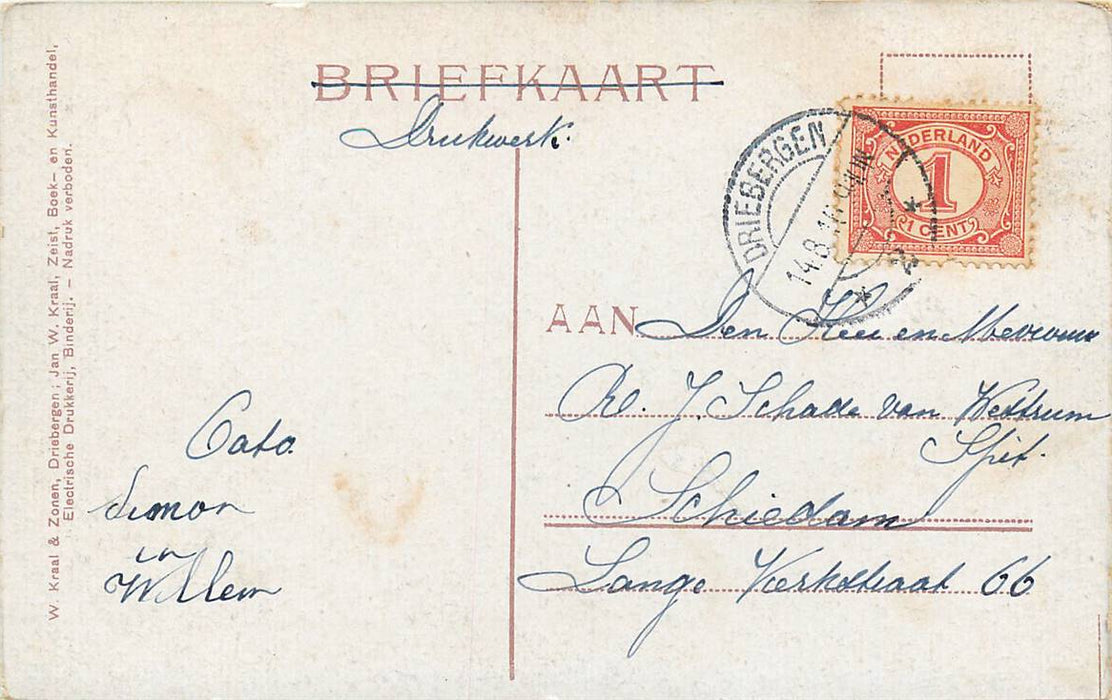 BRIEFKAART
Drukwerk.
NEDERLAND
1
1 CENT
DRIEBERGEN
14.8.16
AAN Den Heer en Mevrouw
J. Schade van Westrum
Spit.
Schiedam
Lange Kerkstraat 66
Cato.
Simon
en
Willem
W. Kraal & Zonen, Driebergen; Jan W. Kraal, Zeist, Boek- en Kunsthandel,
Electrische Drukkerij, Binderij. — Nadruk verboden.